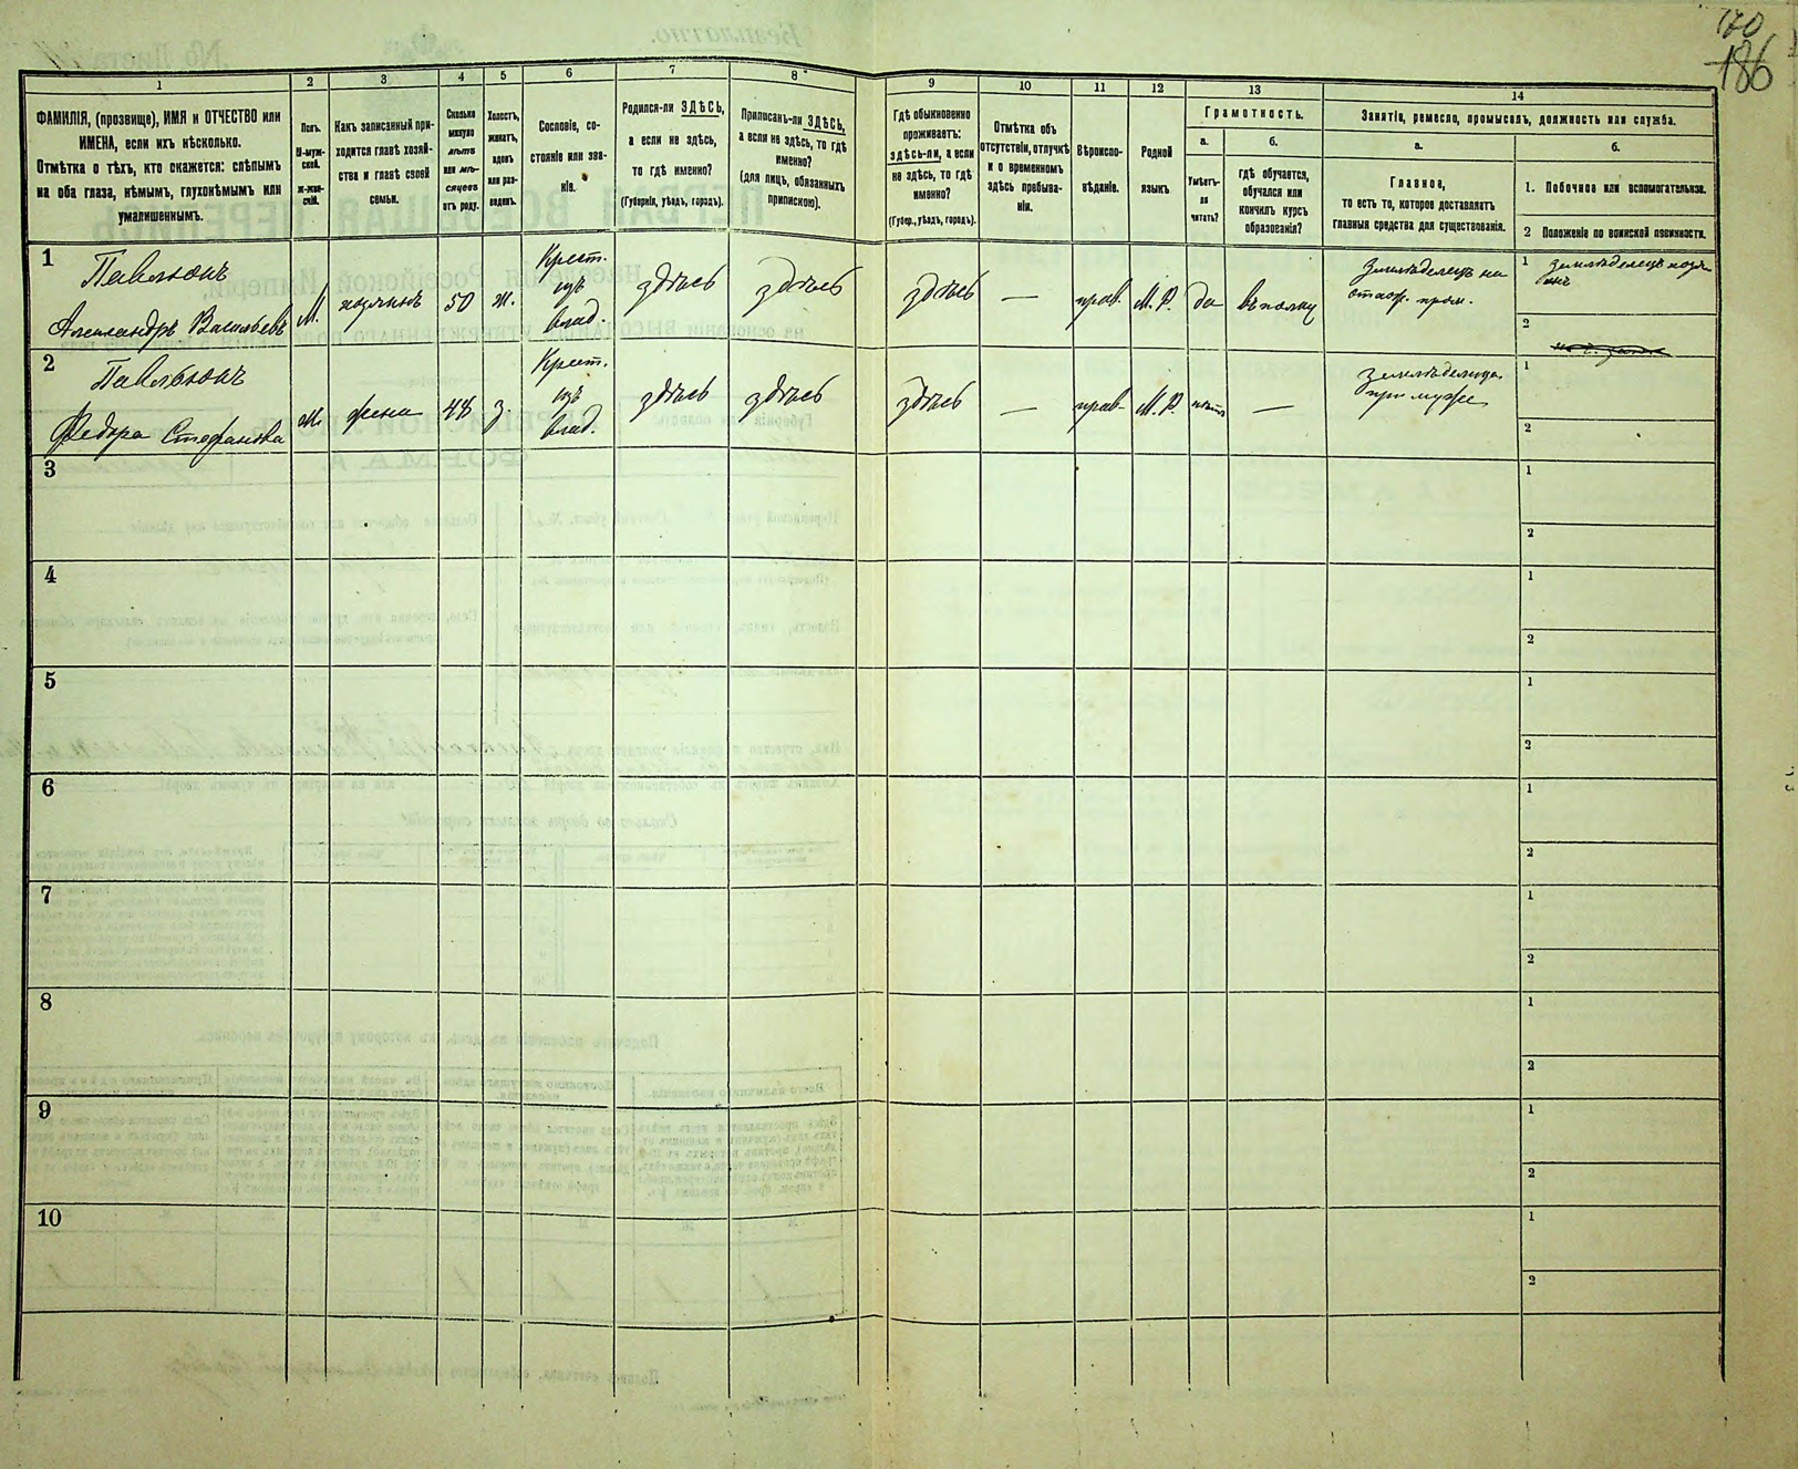 170
186
1
2
3
4
5
6
7
8
9
10
11
12
13
14
ФАМИЛІЯ, (прозвище), ИМЯ и ОТЧЕСТВО или
ИМЕНА, если ихъ нѣсколько.
Отмѣтка о тѣхъ, кто скажется: слѣпымъ
на оба глаза, нѣмымъ, глухонѣмымъ или
умалишеннымъ.
Полъ.
М-муж-
ской.
Ж-жен-
скій.
Какъ записанный при-
ходится главѣ хозяй-
ства и главѣ своей
семьи.
Сколько
минуло
лѣтъ
или мѣ-
сяцевъ
отъ роду.
Холостъ,
женатъ,
вдовъ
или раз-
веденъ.
Сословіе, со-
стояніе или зва-
ніе.
Родился-ли ЗДѢСЬ,
а если не здѣсь,
то гдѣ именно?
(Губернія, уѣздъ, городъ).
Приписанъ-ли ЗДѢСЬ,
а если не здѣсь, то гдѣ
именно?
(для лицъ, обязанныхъ
припискою).
Гдѣ обыкновенно
проживаетъ:
здѣсь-ли, а если
не здѣсь, то гдѣ
именно?
(Губер., уѣздъ, городъ).
Отмѣтка объ
отсутствіи, отлучкѣ
и о временномъ
здѣсь пребыва-
ніи.
Вѣроиспо-
вѣданіе.
Родной
языкъ.
Грамотность.
а.
Умѣетъ-
ли
читать?
б.
гдѣ обучается,
обучался или
кончилъ курсъ
образованія?
Занятіе, ремесло, промыселъ, должность или служба.
а.
Главное,
то есть то, которое доставляетъ
главныя средства для существованія.
б.
1. Побочное или вспомогательное.
2 Положеніе по воинской повинности.
1
Павлюкъ
Александръ Васильевъ
М.
хозяинъ
50
ж.
Крест.
изъ
влад.
здѣсь
здѣсь
здѣсь
—
прав.
М. Р.
да
въ полку
1
2
2
Павлюкъ
Федора Стефанова
ж
жена
48
з.
Крест.
изъ
влад.
здѣсь
здѣсь
здѣсь
—
прав.
М. Р.
нѣтъ
—
земледѣлица
при мужѣ
1
2
3
1
2
4
1
2
5
1
2
6
1
2
7
1
2
8
1
2
9
1
2
10
1
2